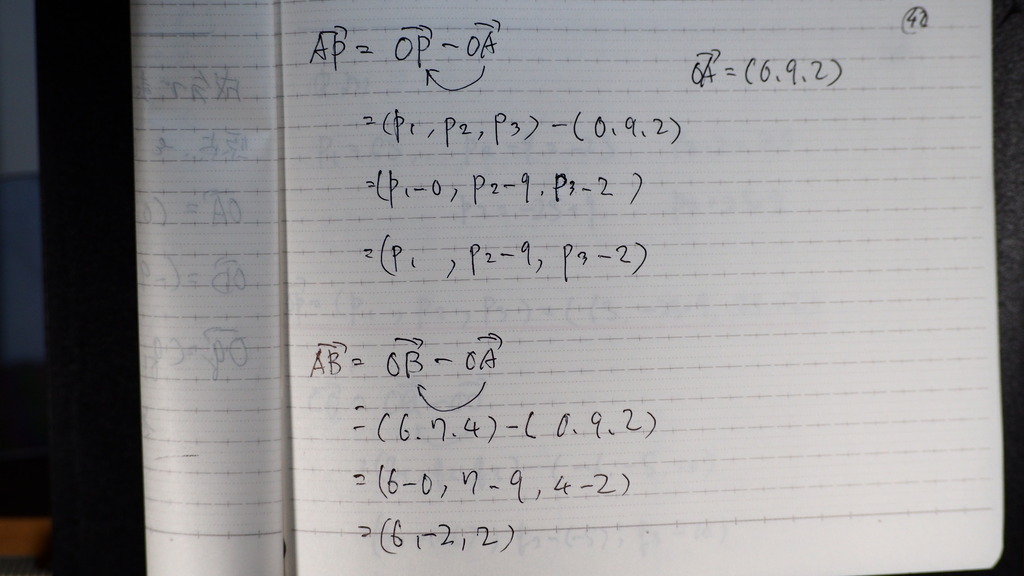 42
AP→ = OP→ − OA→
OA→ = (0.9.2)
= (p1, p2, p3) − (0.9.2)
= (p1−0, p2−9, p3−2)
= (p1 , p2−9, p3−2)
AB→ = OB→ − OA→
= (6.7.4) − (0.9.2)
= (6−0, 7−9, 4−2)
= (6, −2, 2)